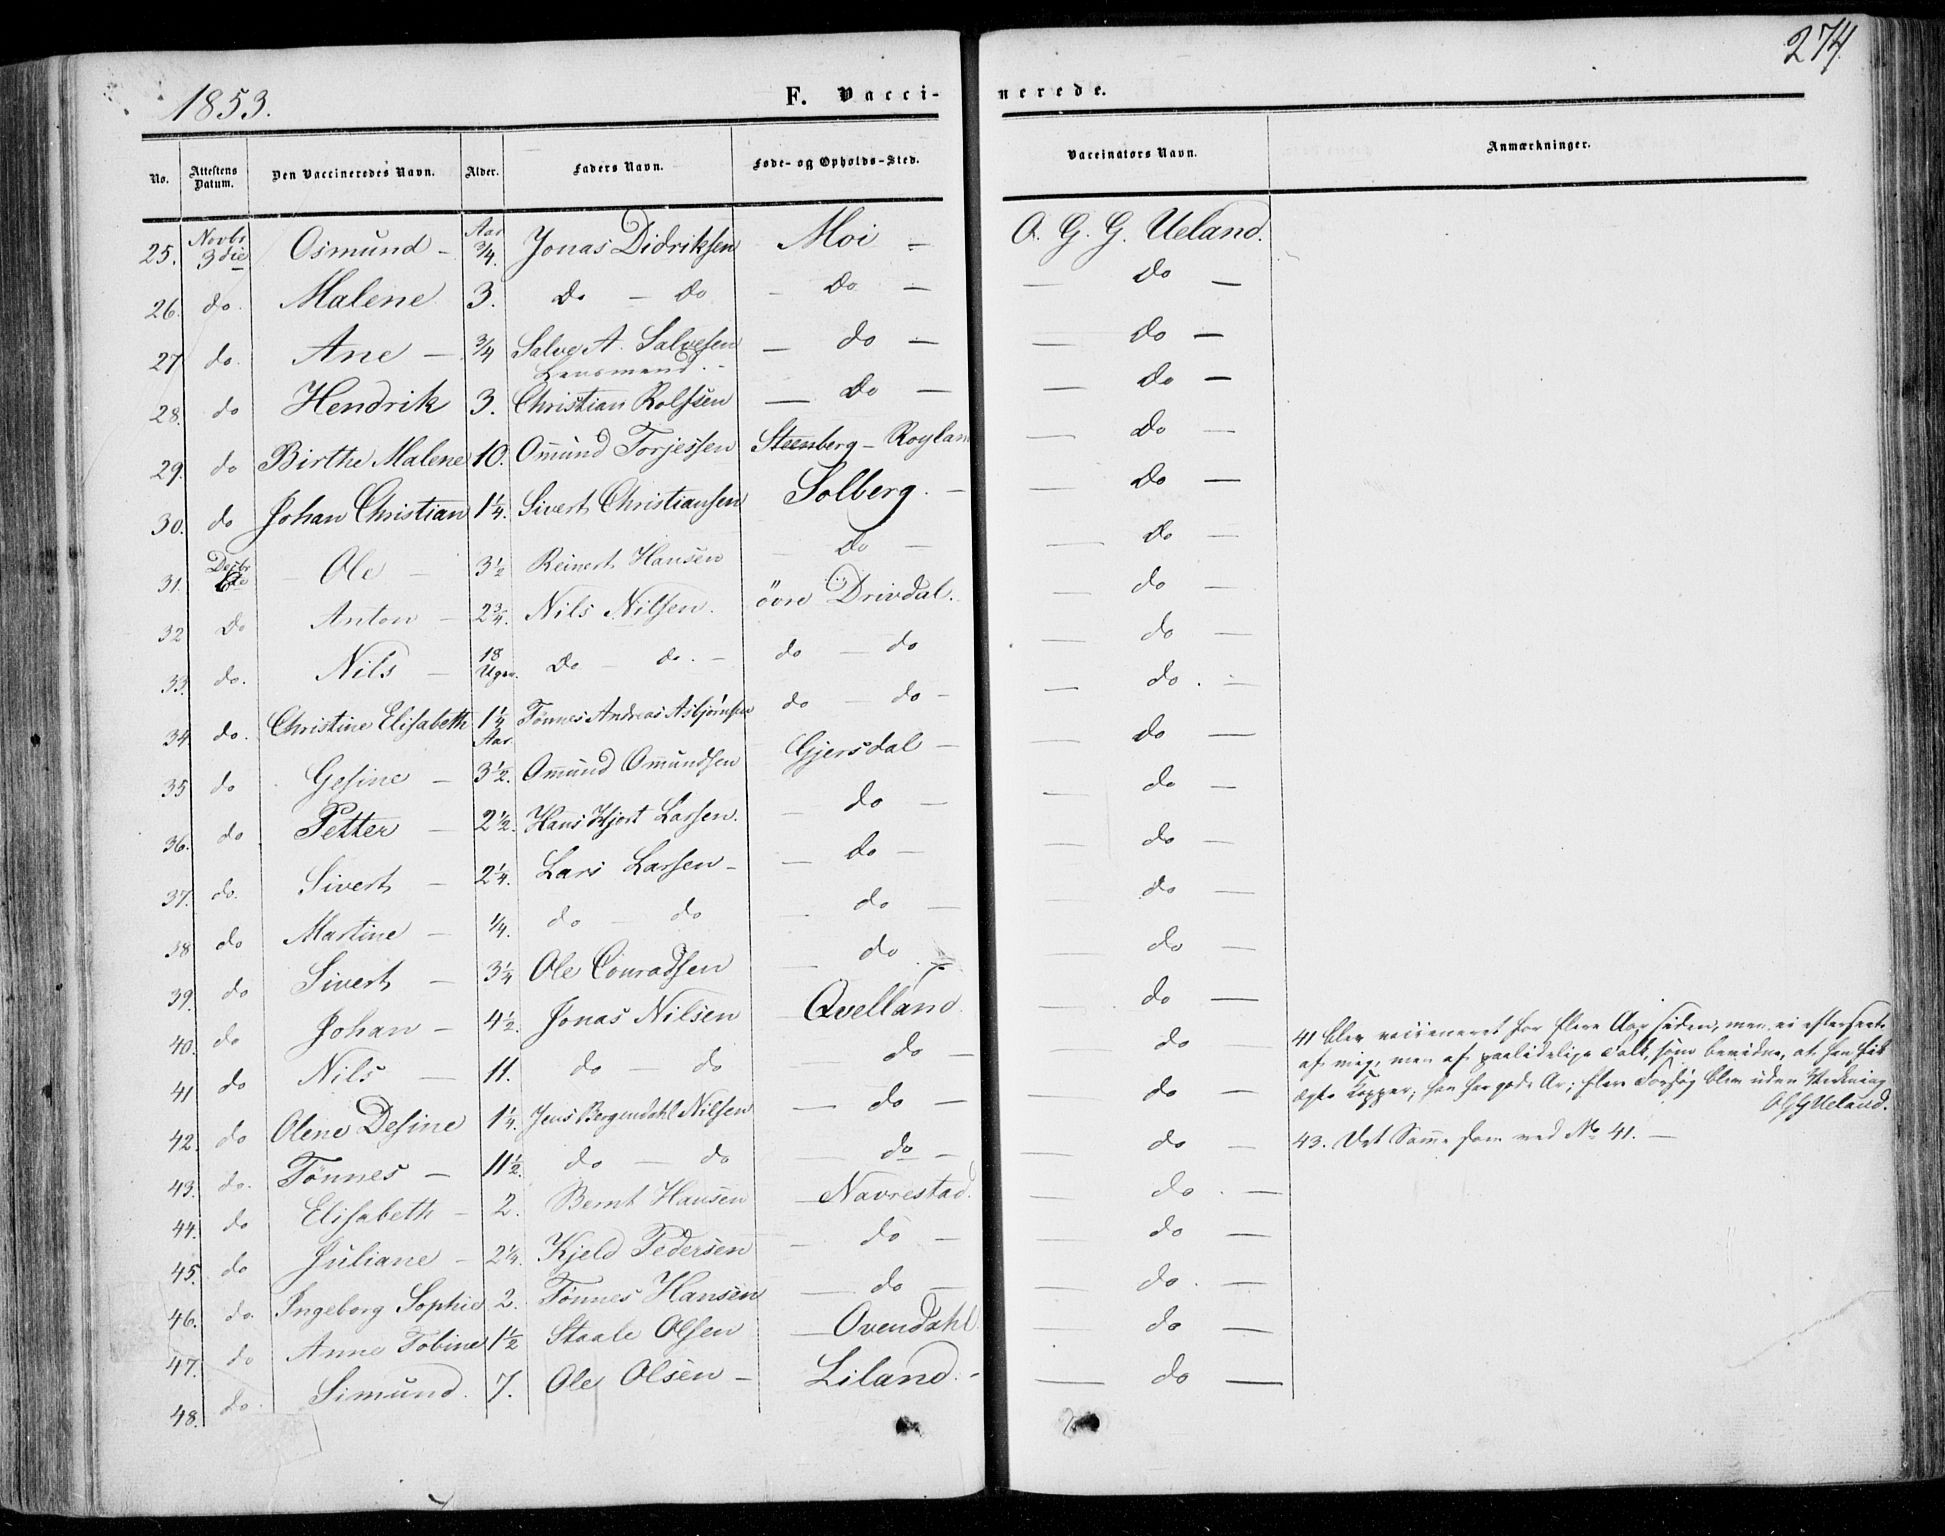 1853.
F. Vacci-
nerede.
274
No. Attestens Datum. Den Vaccineredes Navn. Alder. Faders Navn. Føde- og Opholds-Sted. Vaccinators Navn. Anmærkninger.
25. Novbr 3die Osmund - Aar 3/4. Jonas Didriksen Moi - O. G. G. Ueland.
26. do. Malene 3. Do - Do - Do - - Do -
27 do. Ane - 3/4 Salve A. Salvesen - do - - Do -
Lensmand. -
28. do Hendrik 3. Christian Rolfsen - Do - - Do -
29. do Birthe Malene 10. Omund Torjessen Steenberg - Roylan - Do -
30. do Johan Christian 1 1/4. Sivert Christiansen Solberg. - - Do -
31. Decbr 6te - Ole - 3 1/2 Reinert Hansen - Do - - Do -
32 Do Anton - 2 3/4. Nils Nilsen. övre Drivdal. - do -
33. do. Nils - 18 Uger. Do - do. - do - do - do -
34 do. Christine Elisabeth 1 1/4 Aar Tønnes Andreas Asbjørnsen do - do - - do. -
35 do Gesine - 3 1/2. Omund Omundsen Gjersdal - - do -
36. do Petter - 2 1/2. Hans Hjort Larsen. - do - - do -
37. do. Sivert - 2 1/4. Lars Larsen - - do - - do -
38 do Martine - 1/4. do - do - do - - do -
39. do Sivert - 3 1/4 Ole Conradsen - do - do -
40. do Johan - 4 1/2. Jonas Nilsen Qvelland. - do -
41 do Nils - 11. do - do - do - - do -
41 blev vaccineret for flere Aar siden, men ei efterseet
af mig, men af paalidelige Folk, som bevidne, at han fik
ægte Kopper; han har gode Ar; flere Forsøg blev uden Virkning
OGGUeland.
42. do Olene Desine 1 1/4. Jens Bergendahl Nilsen - do - - do -
43. do. Tønnes - 11 1/2. do - do - do - - do - 43. Det Samme som ved No 41. -
44. do Elisabeth - 2. Bernt Hansen - Navrestad. - do. -
45. do Juliane - 2 1/4. Kjeld Pedersen - do - - do -
46. do. Ingeborg Sophie 2. Tønnes Hansen - do - - do. -
47. do Anne Tobine 1 1/2 Staale Olsen - Ovendahl. - do -
48. do. Simund. 7. Ole Olsen - Liland. - - do -